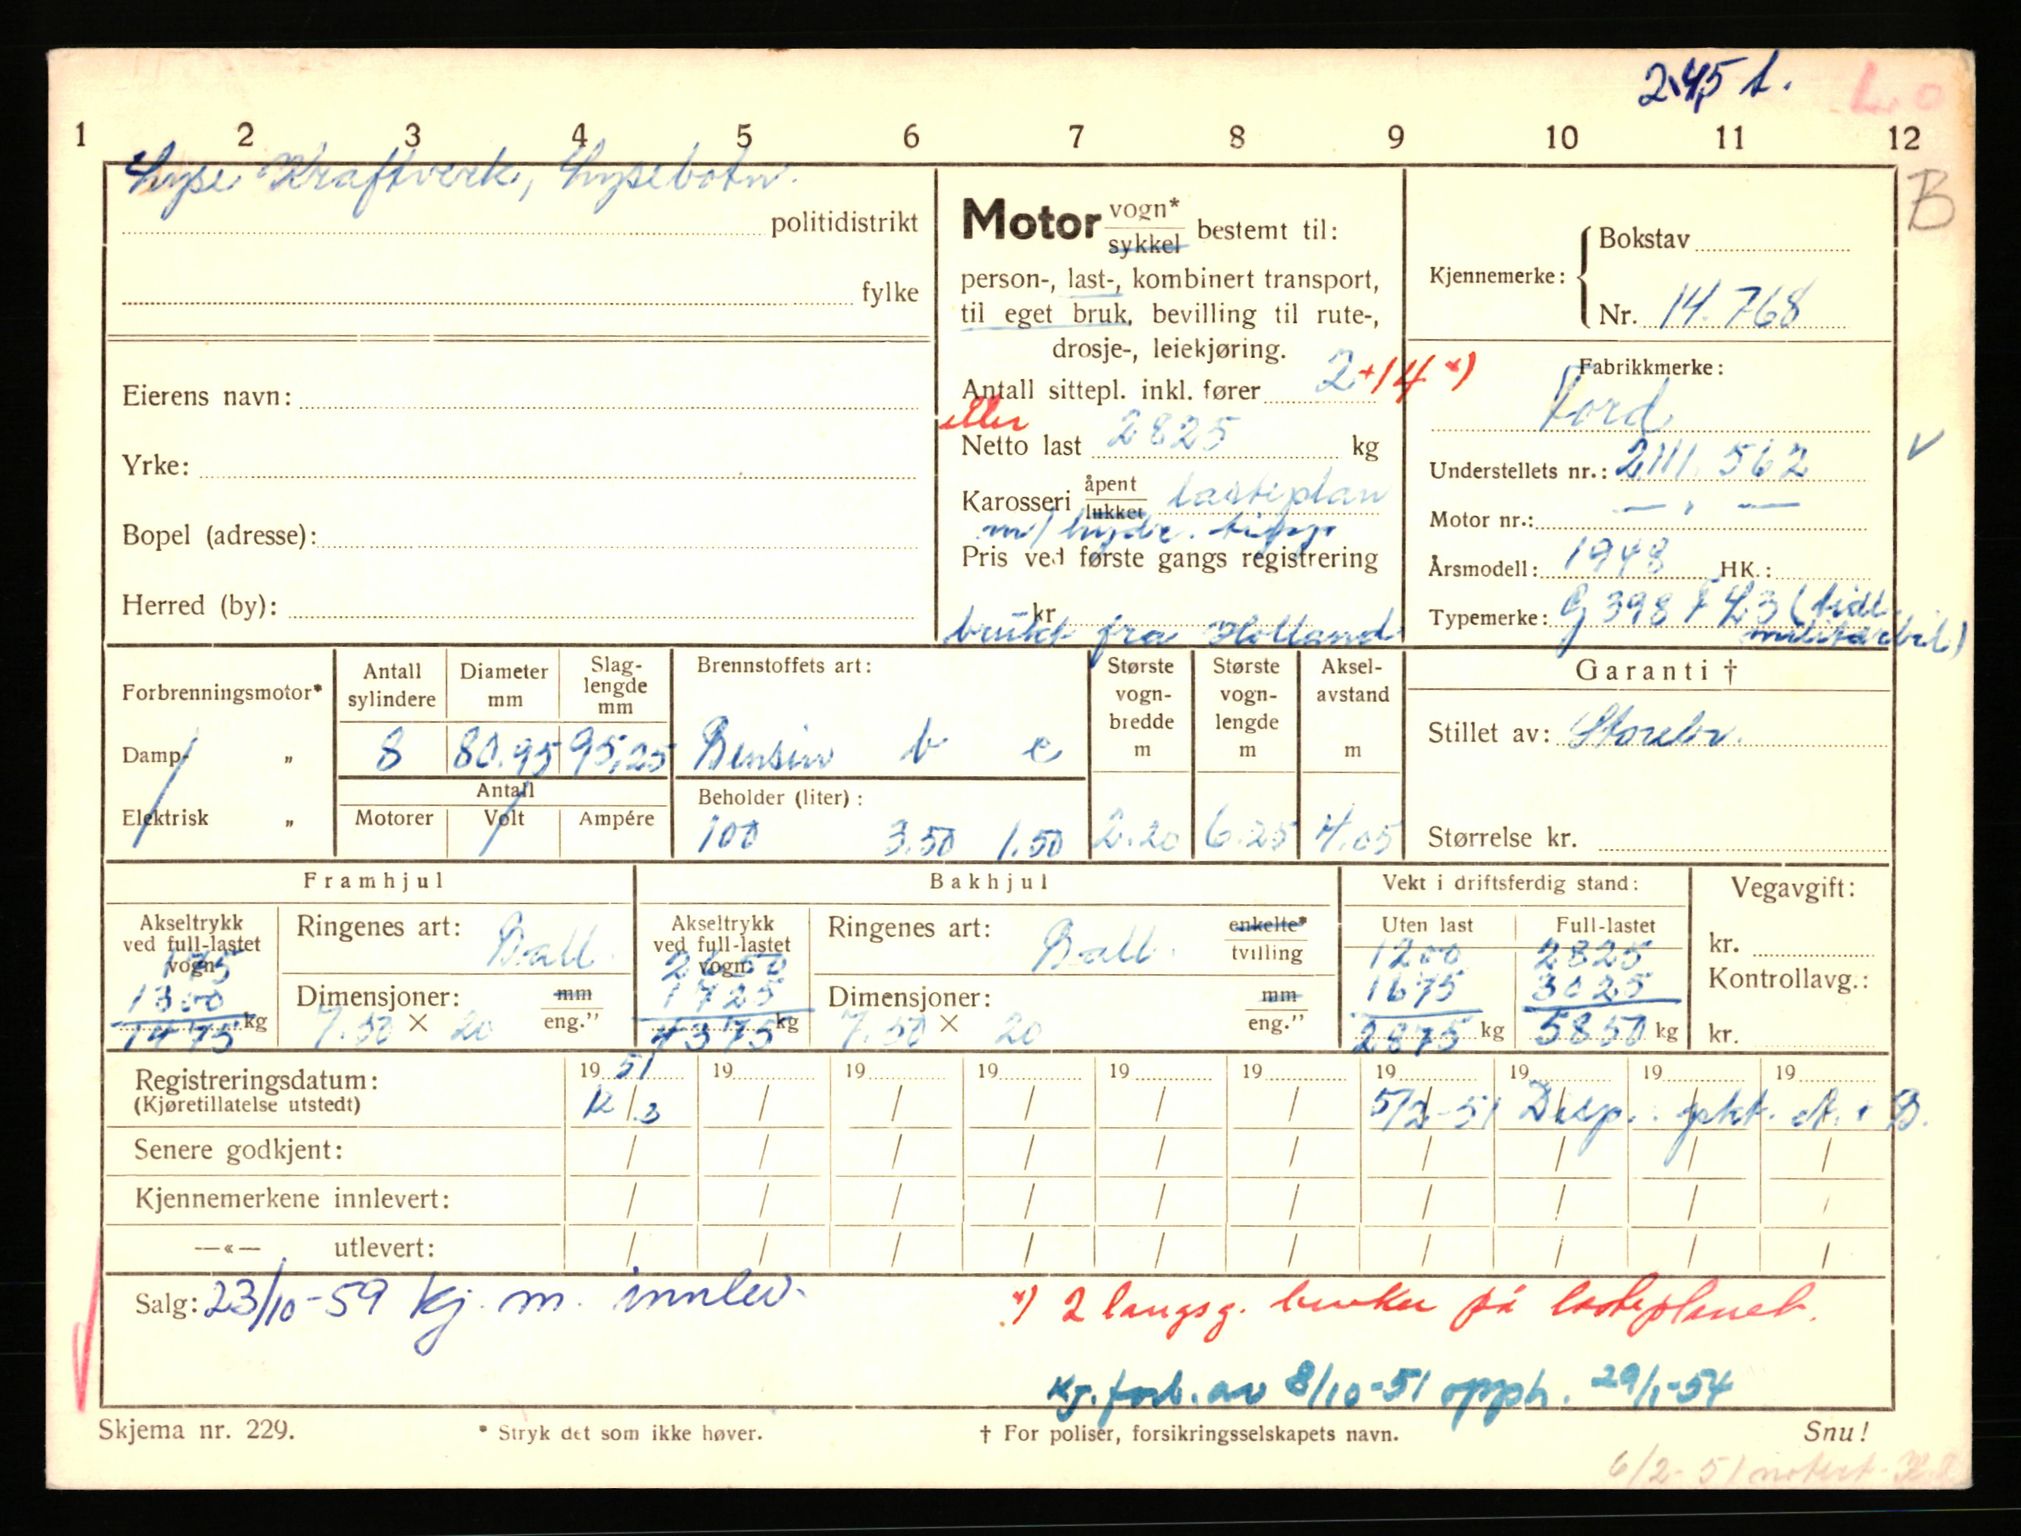 2.45 t. L. o
1 2 3 4 5 6 7 8 9 10 11 12
B
Lyse Kraftverk, Lysebotn.
politidistrikt
fylke
Eierens navn:
Yrke:
Bopel (adresse):
Herred (by):
Motor vogn* sykkel bestemt til:
person-, last-, kombinert transport,
til eget bruk, bevilling til rute-,
drosje-, leiekjøring.
Antall sittepl. inkl. fører 2 +14 *)
eller
Netto last 2825 kg
Karosseri åpent lukket lasteplan
m/ hydr. tipp
Pris ved første gangs registrering
kr
brukt fra Holland
Kjennemerke: Bokstav
Nr. 14.768
Fabrikkmerke:
Ford
Understellets nr.: 2111.562
Motor nr.: — " —
Årsmodell: 1948 HK.:
Typemerke: G 398 T L3 (tidl.
militærbil)
Forbrenningsmotor*
Damp- „
Elektrisk „
Antall sylindere Diameter mm Slag-lengde mm
8 80.95 95,25
Antall
Motorer Volt Ampére
Brennstoffets art:
Bensin b e
Beholder (liter):
100 3.50 1.50
Største vogn-bredde m Største vogn-lengde m Aksel-avstand m
2.20 6.25 4.05
Garanti †
Stillet av: Storebr.
Størrelse kr.
Framhjul
Akseltrykk ved full-lastet vogn
175
1300
1475 kg
Ringenes art: Ball.
Dimensjoner: mm eng."
7.50 × 20
Bakhjul
Akseltrykk ved full-lastet vogn
2650
1725
4375 kg
Ringenes art: Ball. enkelte* tvilling
Dimensjoner: mm eng."
7.50 × 20
Vekt i driftsferdig stand:
Uten last Full-lastet
1200 2825
1675 3025
2875 kg 5850 kg
Vegavgift:
kr.
Kontrollavg.:
kr.
Registreringsdatum: 19 51 19 19 19 19 19 19 19 19 19
(Kjøretillatelse utstedt) 12/3 5/2-51 Disp. gkt. A. + B.
Senere godkjent:
Kjennemerkene innlevert:
—«— utlevert:
Salg: 23/10-59 kj. m. innlev.
*) 2 langsg. benker på lasteplanet.
Kj. forb. av 8/10-51 opph. 29/1-54
Skjema nr. 229. * Stryk det som ikke høver. † For poliser, forsikringsselskapets navn. Snu!
6/2-51 notert